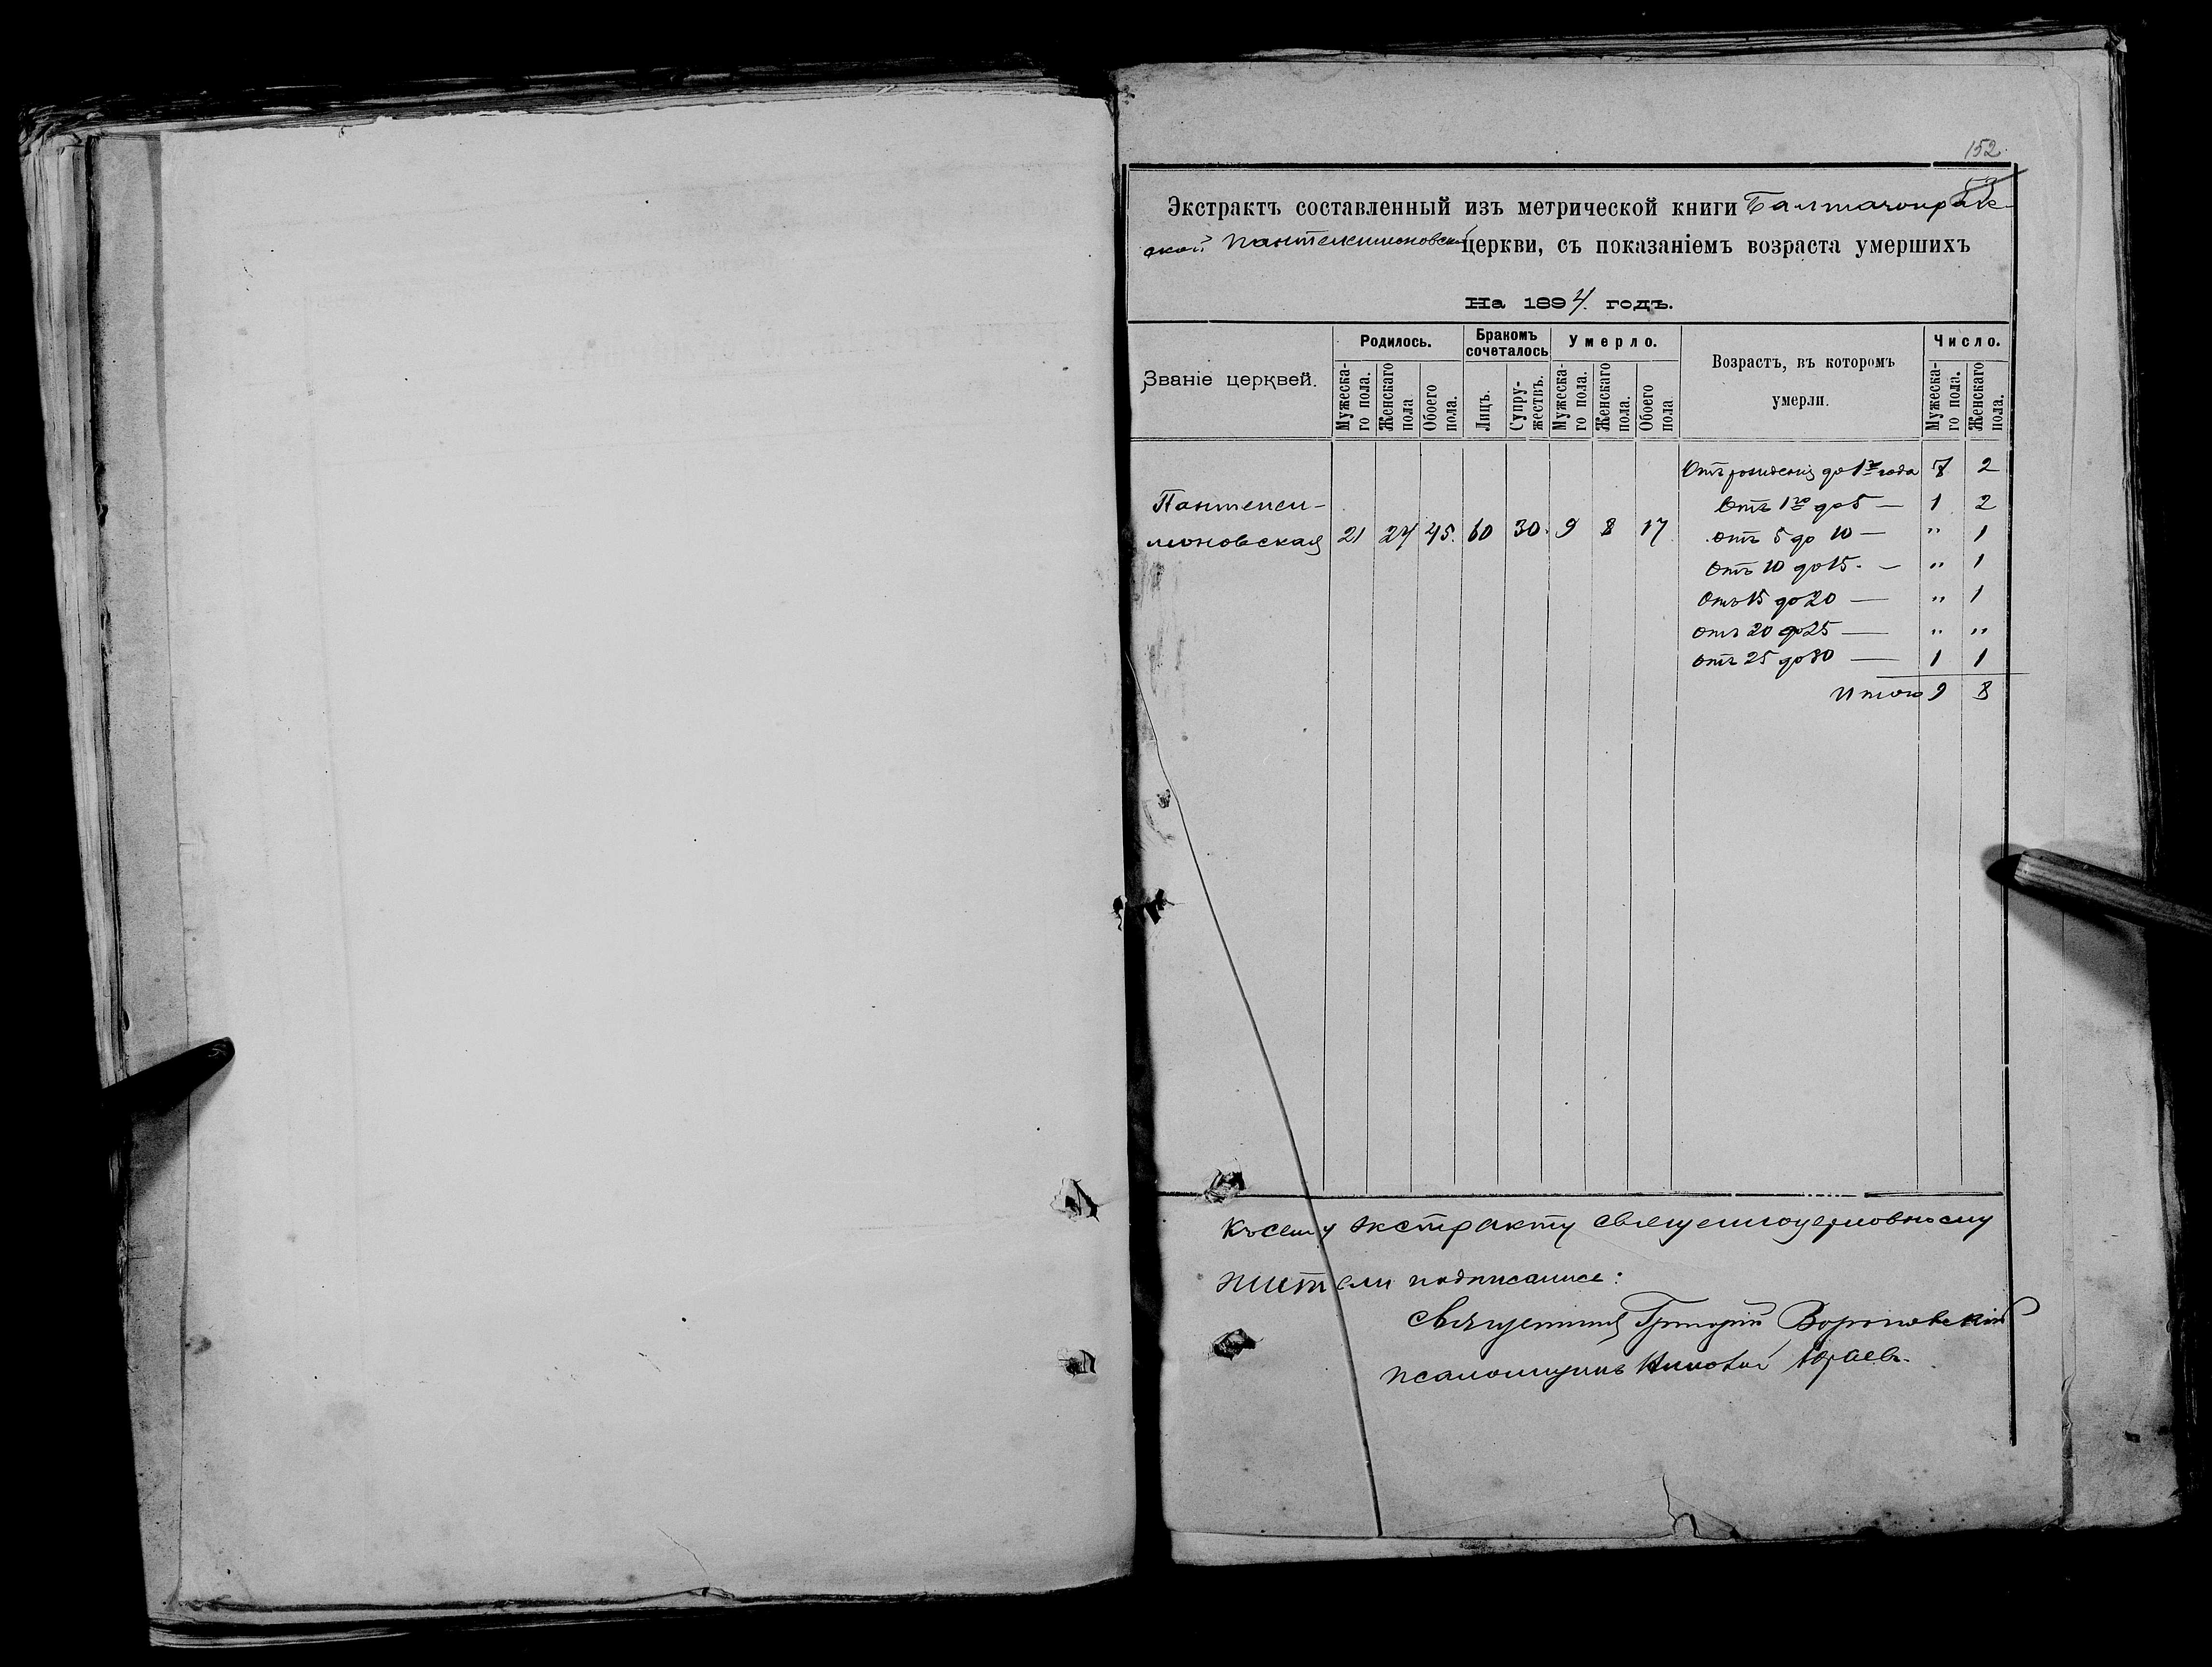 152
Экстрактъ составленный изъ метрической книги Балтачокрак-
ской Пантелеимоновской церкви, съ показаніемъ возраста умершихъ
На 1894 годъ.
Званіе церквей.
Родилось.
Мужеска-
го пола.
Женскаго
пола
Обоего
пола.
Бракомъ
сочеталось
Лицъ.
Супру-
жествъ.
Умерло.
Мужеска-
го пола.
Женскаго
пола.
Обоего
пола
Возрастъ, въ которомъ
умерли.
Число.
Мужеска-
го пола.
Женскаго
пола.
Пантелеи-
моновская 21 24 45. 60 30. 9 8 17
Отъ рожденія до 1го года 7 2
Отъ 1го до 5 — 1 2
Отъ 5 до 10 — " 1
Отъ 10 до 15. — " 1
Отъ 15 до 20 — " 1
Отъ 20 до 25 — " "
Отъ 25 до 80 — 1 1
Итого 9 8
Къ сему экстракту священноцерковнослу
жители подписались:
Священникъ Григорій
Псаломщикъ Николай